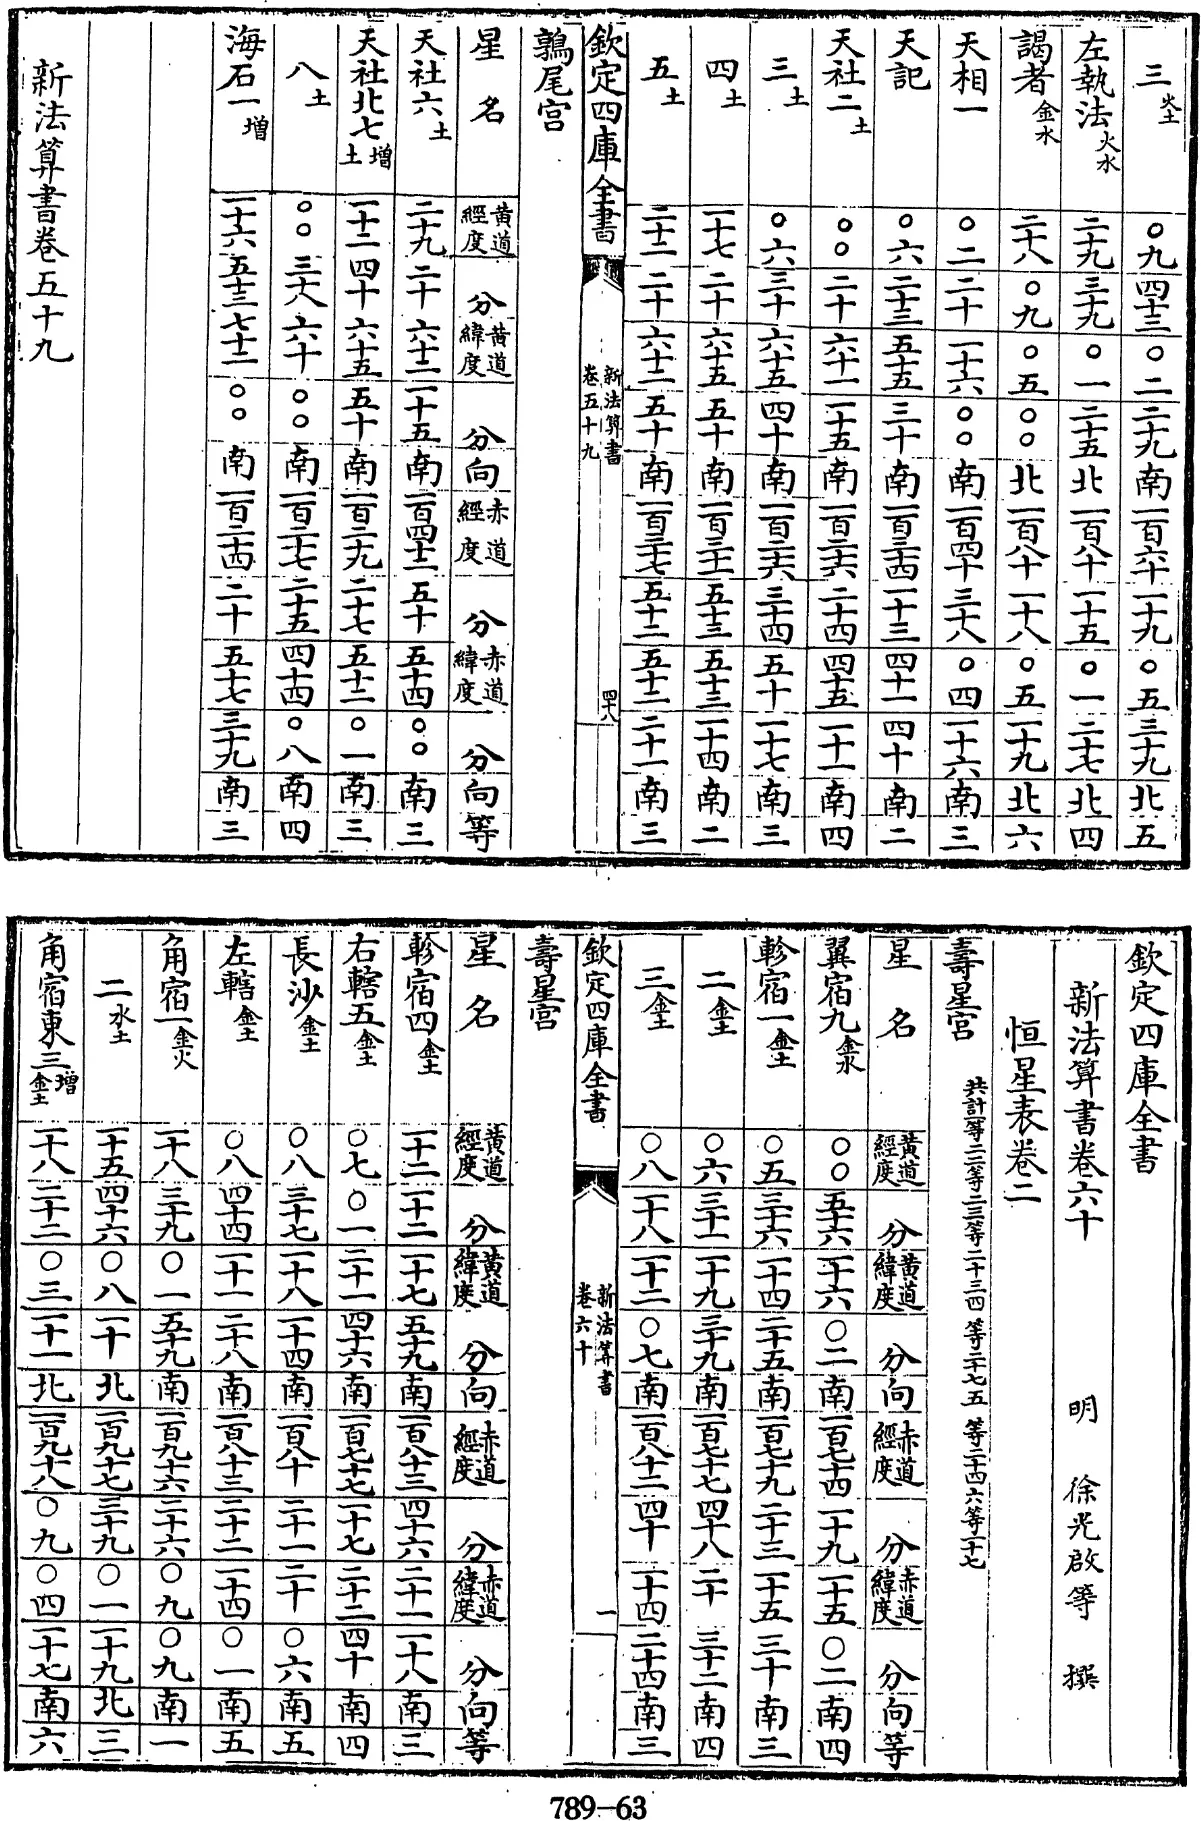 三火土 〇九 四十三 〇二 二十九 南 一百六十 一十九 〇五 三十九 北 五
左執法火水 二十九 三十九 〇一 二十五 北 一百八十 一十五 〇一 二十七 北 四
謁者金水 二十八 〇九 〇五 〇〇 北 一百八十 一十八 〇五 一十九 北 六
天相一 〇二 二十 一十六 〇〇 南 一百四十 三十八 〇四 一十六 南 三
天記 〇六 二十三 五十五 三十 南 一百三十四 一十三 四十一 四十 南 二
天社二土 〇〇 二十 六十一 一十五 南 一百二十六 二十四 四十五 一十一 南 四
三土 〇六 三十 六十五 四十 南 一百二十六 三十四 五十 一十七 南 三
四土 一十七 二十 六十五 五十 南 一百三十一 五十三 五十三 一十四 南 二
五土 二十二 二十 六十二 五十 南 一百三十七 五十二 五十二 二十一 南 三
欽定四庫全書 新法算書 卷五十九 四十八
鶉尾宮
星名 黃道經度 分 黃道緯度 分 向 赤道經度 分 赤道緯度 分 向 等
天社六土 二十九 二十 六十二 一十五 南 一百四十二 五十 五十四 〇〇 南 三
天社北七增土 一十二 四十 六十五 五十 南 一百二十九 二十七 五十二 〇一 南 三
八土 〇〇 三十八 六十 〇〇 南 一百二十七 二十五 四十四 〇八 南 四
海石一增 一十六 五十三 七十二 〇〇 南 一百二十四 二十 五十七 三十九 南 三
新法算書卷五十九
欽定四庫全書
新法算書卷六十 明 徐光啟等 撰
恒星表卷二
壽星宮 共計一等二二等二三等二十三四等二十七五等二十四六等一十七
星名 黃道經度 分 黃道緯度 分 向 赤道經度 分 赤道緯度 分 向 等
翼宿九金水 〇〇 五十六 一十六 〇二 南 一百七十四 一十九 一十五 〇二 南 四
軫宿一金土 〇五 三十六 一十四 二十五 南 一百七十九 二十三 一十五 三十 南 三
二金土 〇六 三十一 一十九 三十九 南 一百七十七 四十八 二十 三十二 南 四
三金土 〇八 一十八 一十二 〇七 南 一百八十二 四十 一十四 二十四 南 三
欽定四庫全書 新法算書 卷六十 一
壽星宮
星名 黃道經度 分 黃道緯度 分 向 赤道經度 分 赤道緯度 分 向 等
軫宿四金土 一十二 一十二 一十七 五十九 南 一百八十三 四十六 二十一 一十八 南 三
右轄五金土 〇七 〇一 二十一 四十六 南 一百七十七 一十七 二十二 四十 南 四
長沙金土 〇八 三十七 一十八 一十四 南 一百八十 二十一 二十 〇六 南 五
左轄金土 〇八 四十四 一十一 二十八 南 一百八十三 二十二 一十四 〇一 南 五
角宿一金火 一十八 三十九 〇一 五十九 南 一百九十六 二十六 〇九 〇九 南 一
二水土 一十五 四十六 〇八 一十 北 一百九十七 三十九 〇一 一十九 北 三
角宿東三增金土 一十八 二十二 〇三 一十一 北 一百九十八 〇九 〇四 一十七 南 六
789-63